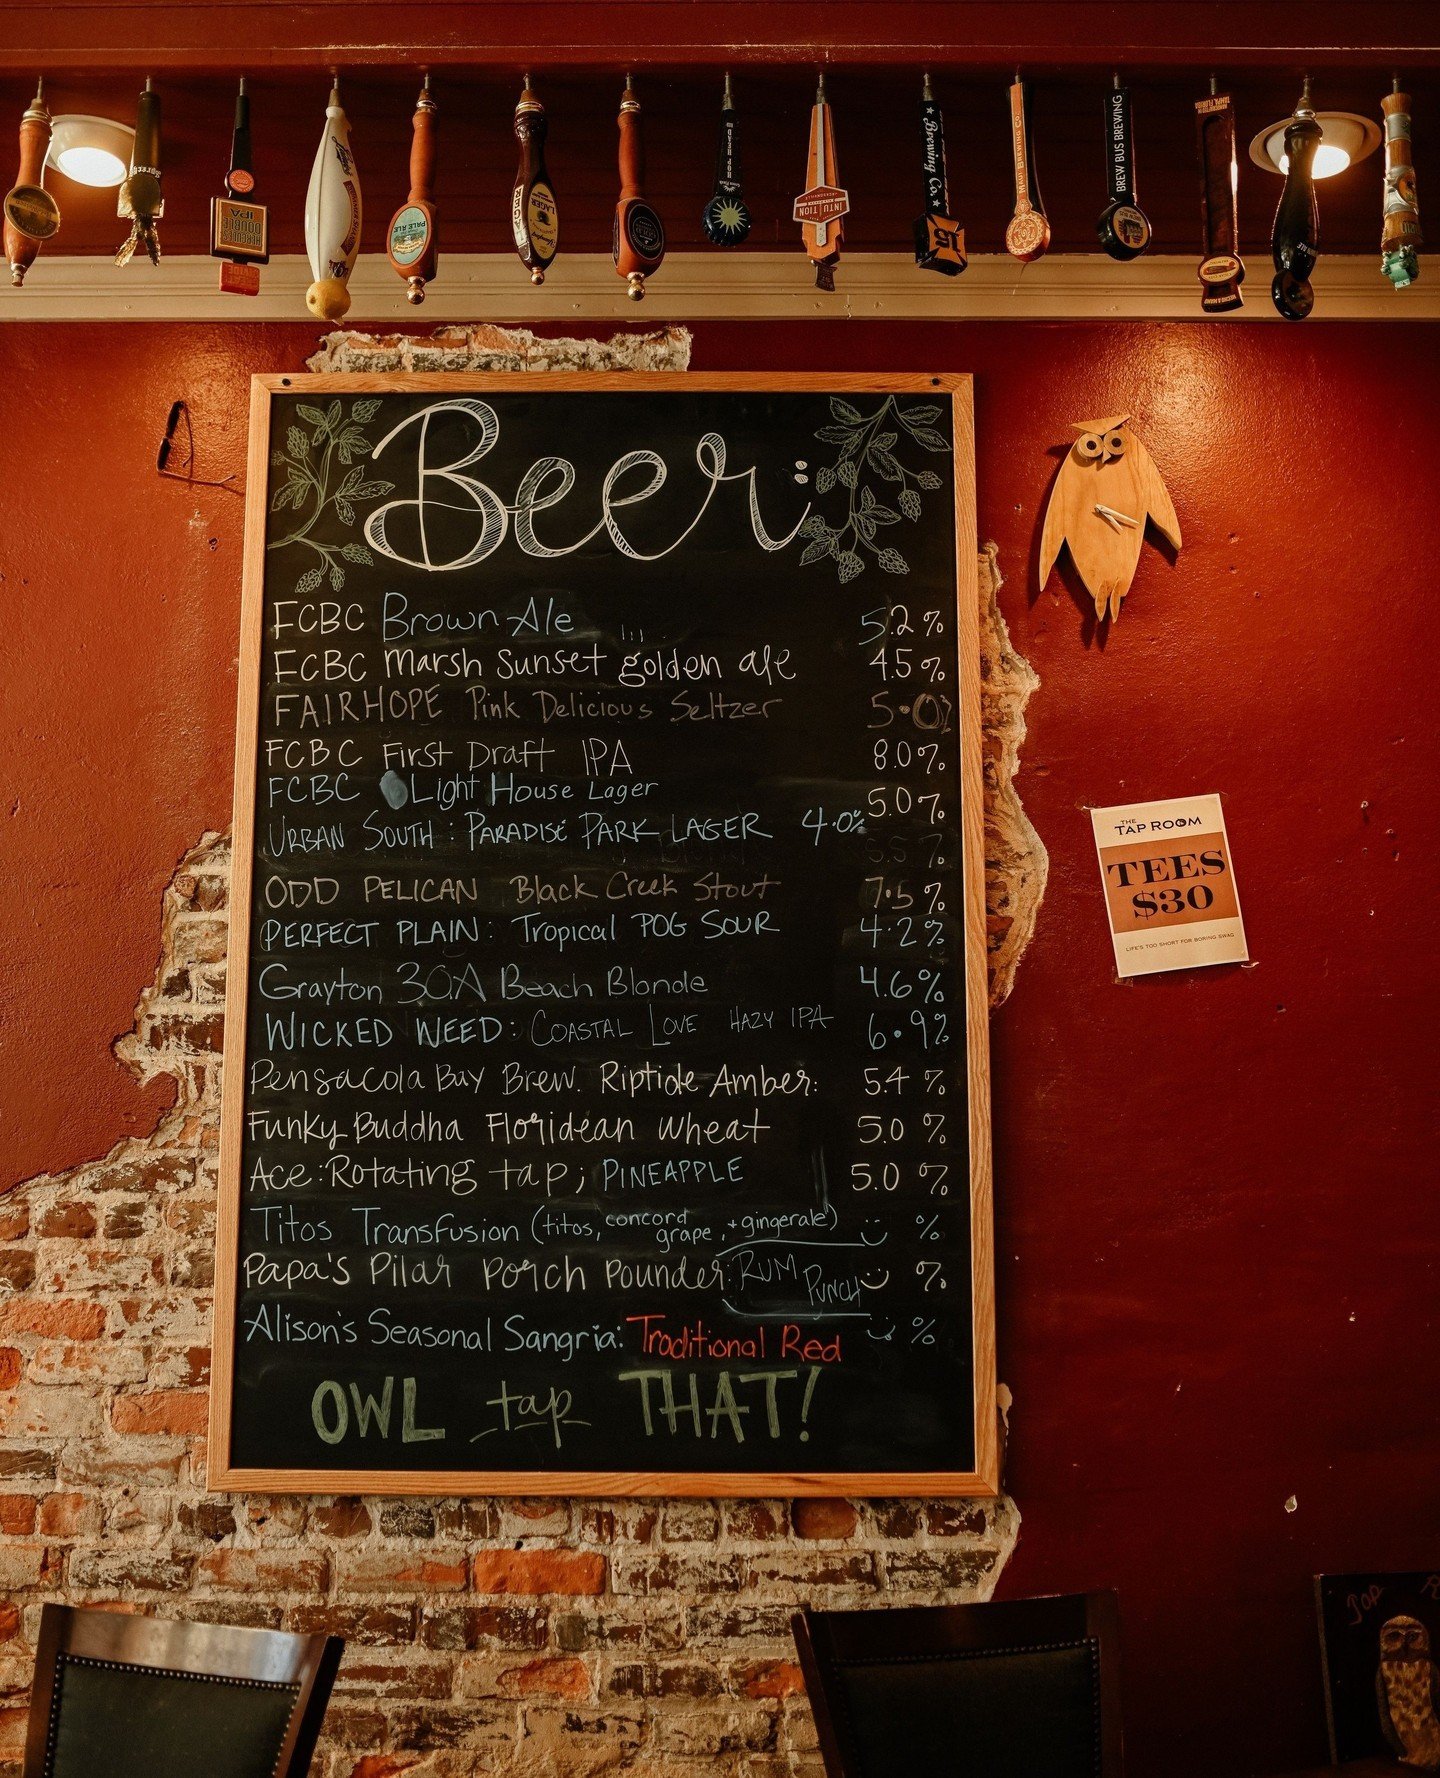 DOUBLE IPA
PALE ALE
LAGER
HOP HEAD
INTUITION
Brewing Co.
15
BREW BUS BREWING
TAMPA, FLORIDA
Beer:
FCBC Brown Ale 5.2%
FCBC Marsh Sunset golden ale 4.5%
FAIRHOPE Pink Delicious Seltzer 5.0%
FCBC First Draft IPA 8.0%
FCBC Light House Lager 5.0%
URBAN SOUTH: PARADISE PARK LAGER 4.0%
ODD PELICAN Black Creek Stout 7.5%
PERFECT PLAIN: Tropical POG SOUR 4.2%
Grayton 30A Beach Blonde 4.6%
WICKED WEED: COASTAL LOVE HAZY IPA 6.9%
Pensacola Bay Brew. Riptide Amber: 5.4%
Funky Buddha Floridean wheat 5.0%
Ace: Rotating tap; PINEAPPLE 5.0%
Titos Transfusion (titos, concord grape, + gingerale) %
Papa's Pilar Porch Pounder: RUM PUNCH %
Alison's Seasonal Sangria: Traditional Red %
OWL tap THAT!
THE
TAP ROOM
TEES
$30
LIFE'S TOO SHORT FOR BORING SWAG